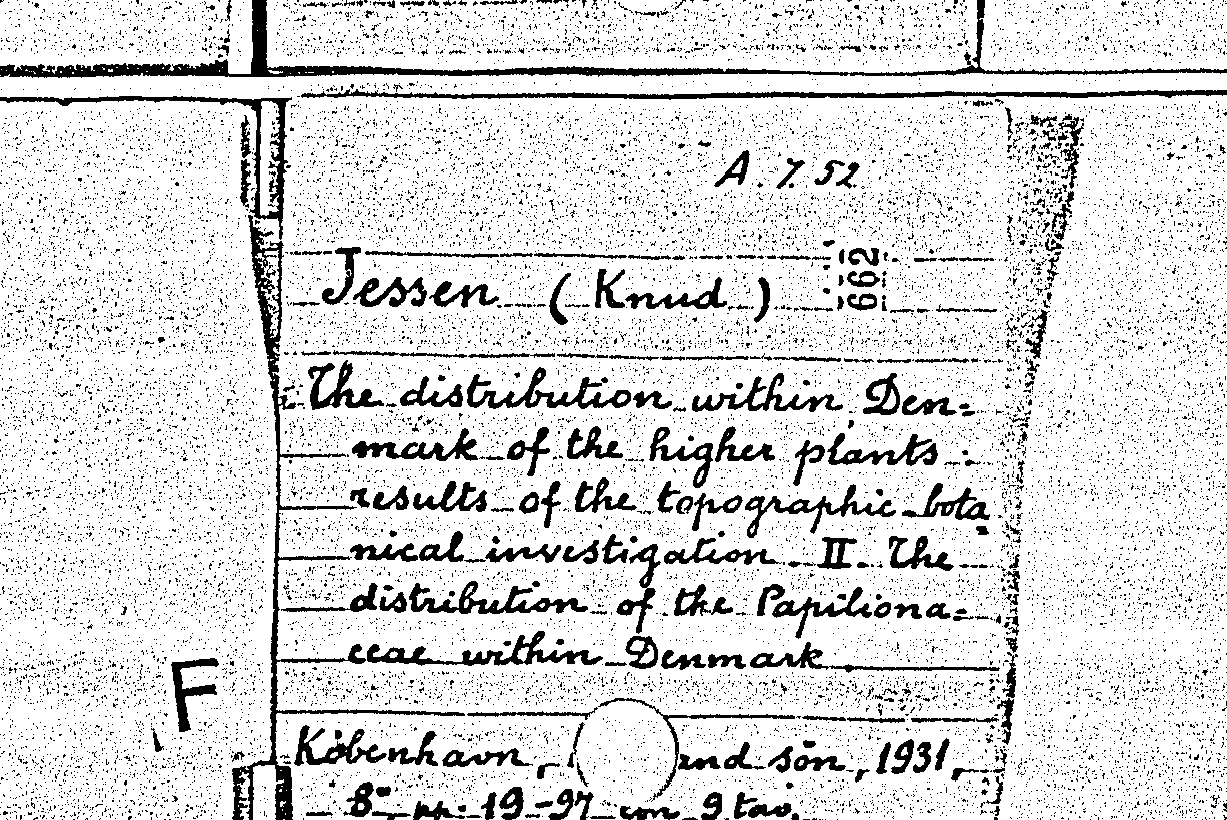 A. 7. 52
662
Jessen (Knud)
The distribution within Den=
mark of the higher plants :
results of the topographic-bota=
nical investigation. II. The
distribution of the Papiliona=
ceae within Denmark.
F
København, and søn, 1931,
8° pp. 19-97 con 9 tav.